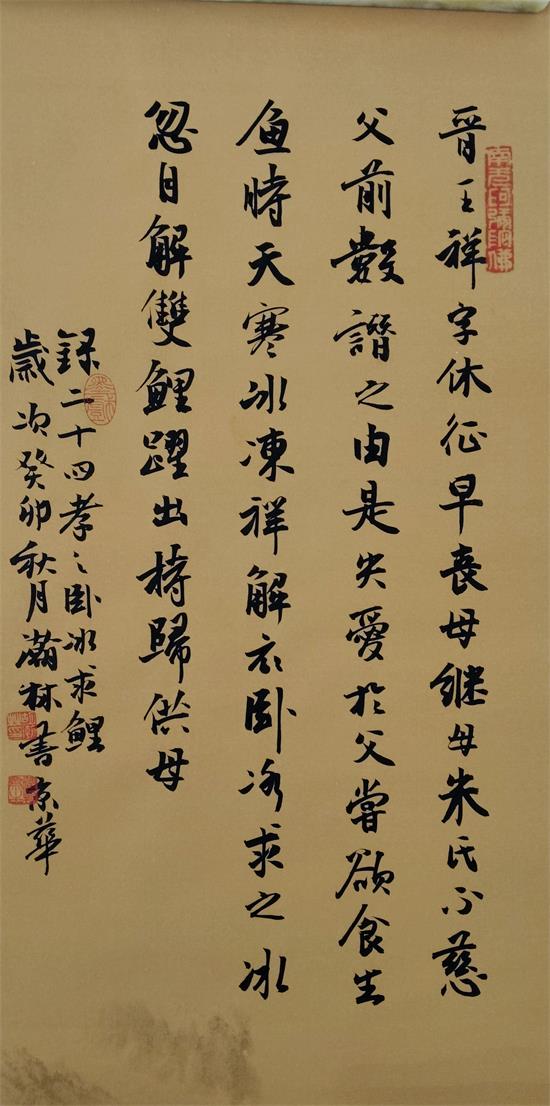 南无阿彌陀佛
晉王祥字休征早喪母继母朱氏不慈
父前數譖之由是失愛於父嘗欲食生
魚時天寒冰凍祥解衣臥冰求之冰
忽自解雙鯉躍出持歸供母
録二十四孝之臥冰求鯉
歲次癸卯秋月瀟林書京華